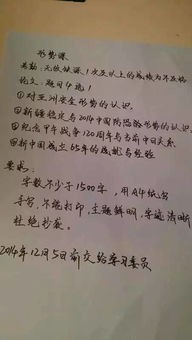 形势课
考勤：无故缺课1次及以上的成绩为不及格
论文：题目(4选1)
①对亚洲安全形势的认识。
②新疆稳定与2014中国防恐形势的认识
③纪念甲午战争120周年与当前中日关系
④新中国成立65年的成就与经验
要求：
字数不少于1500字，用A4纸书
写，不能打印，主题鲜明，字迹清晰
杜绝抄袭。
2014年12月5日前交给学习委员